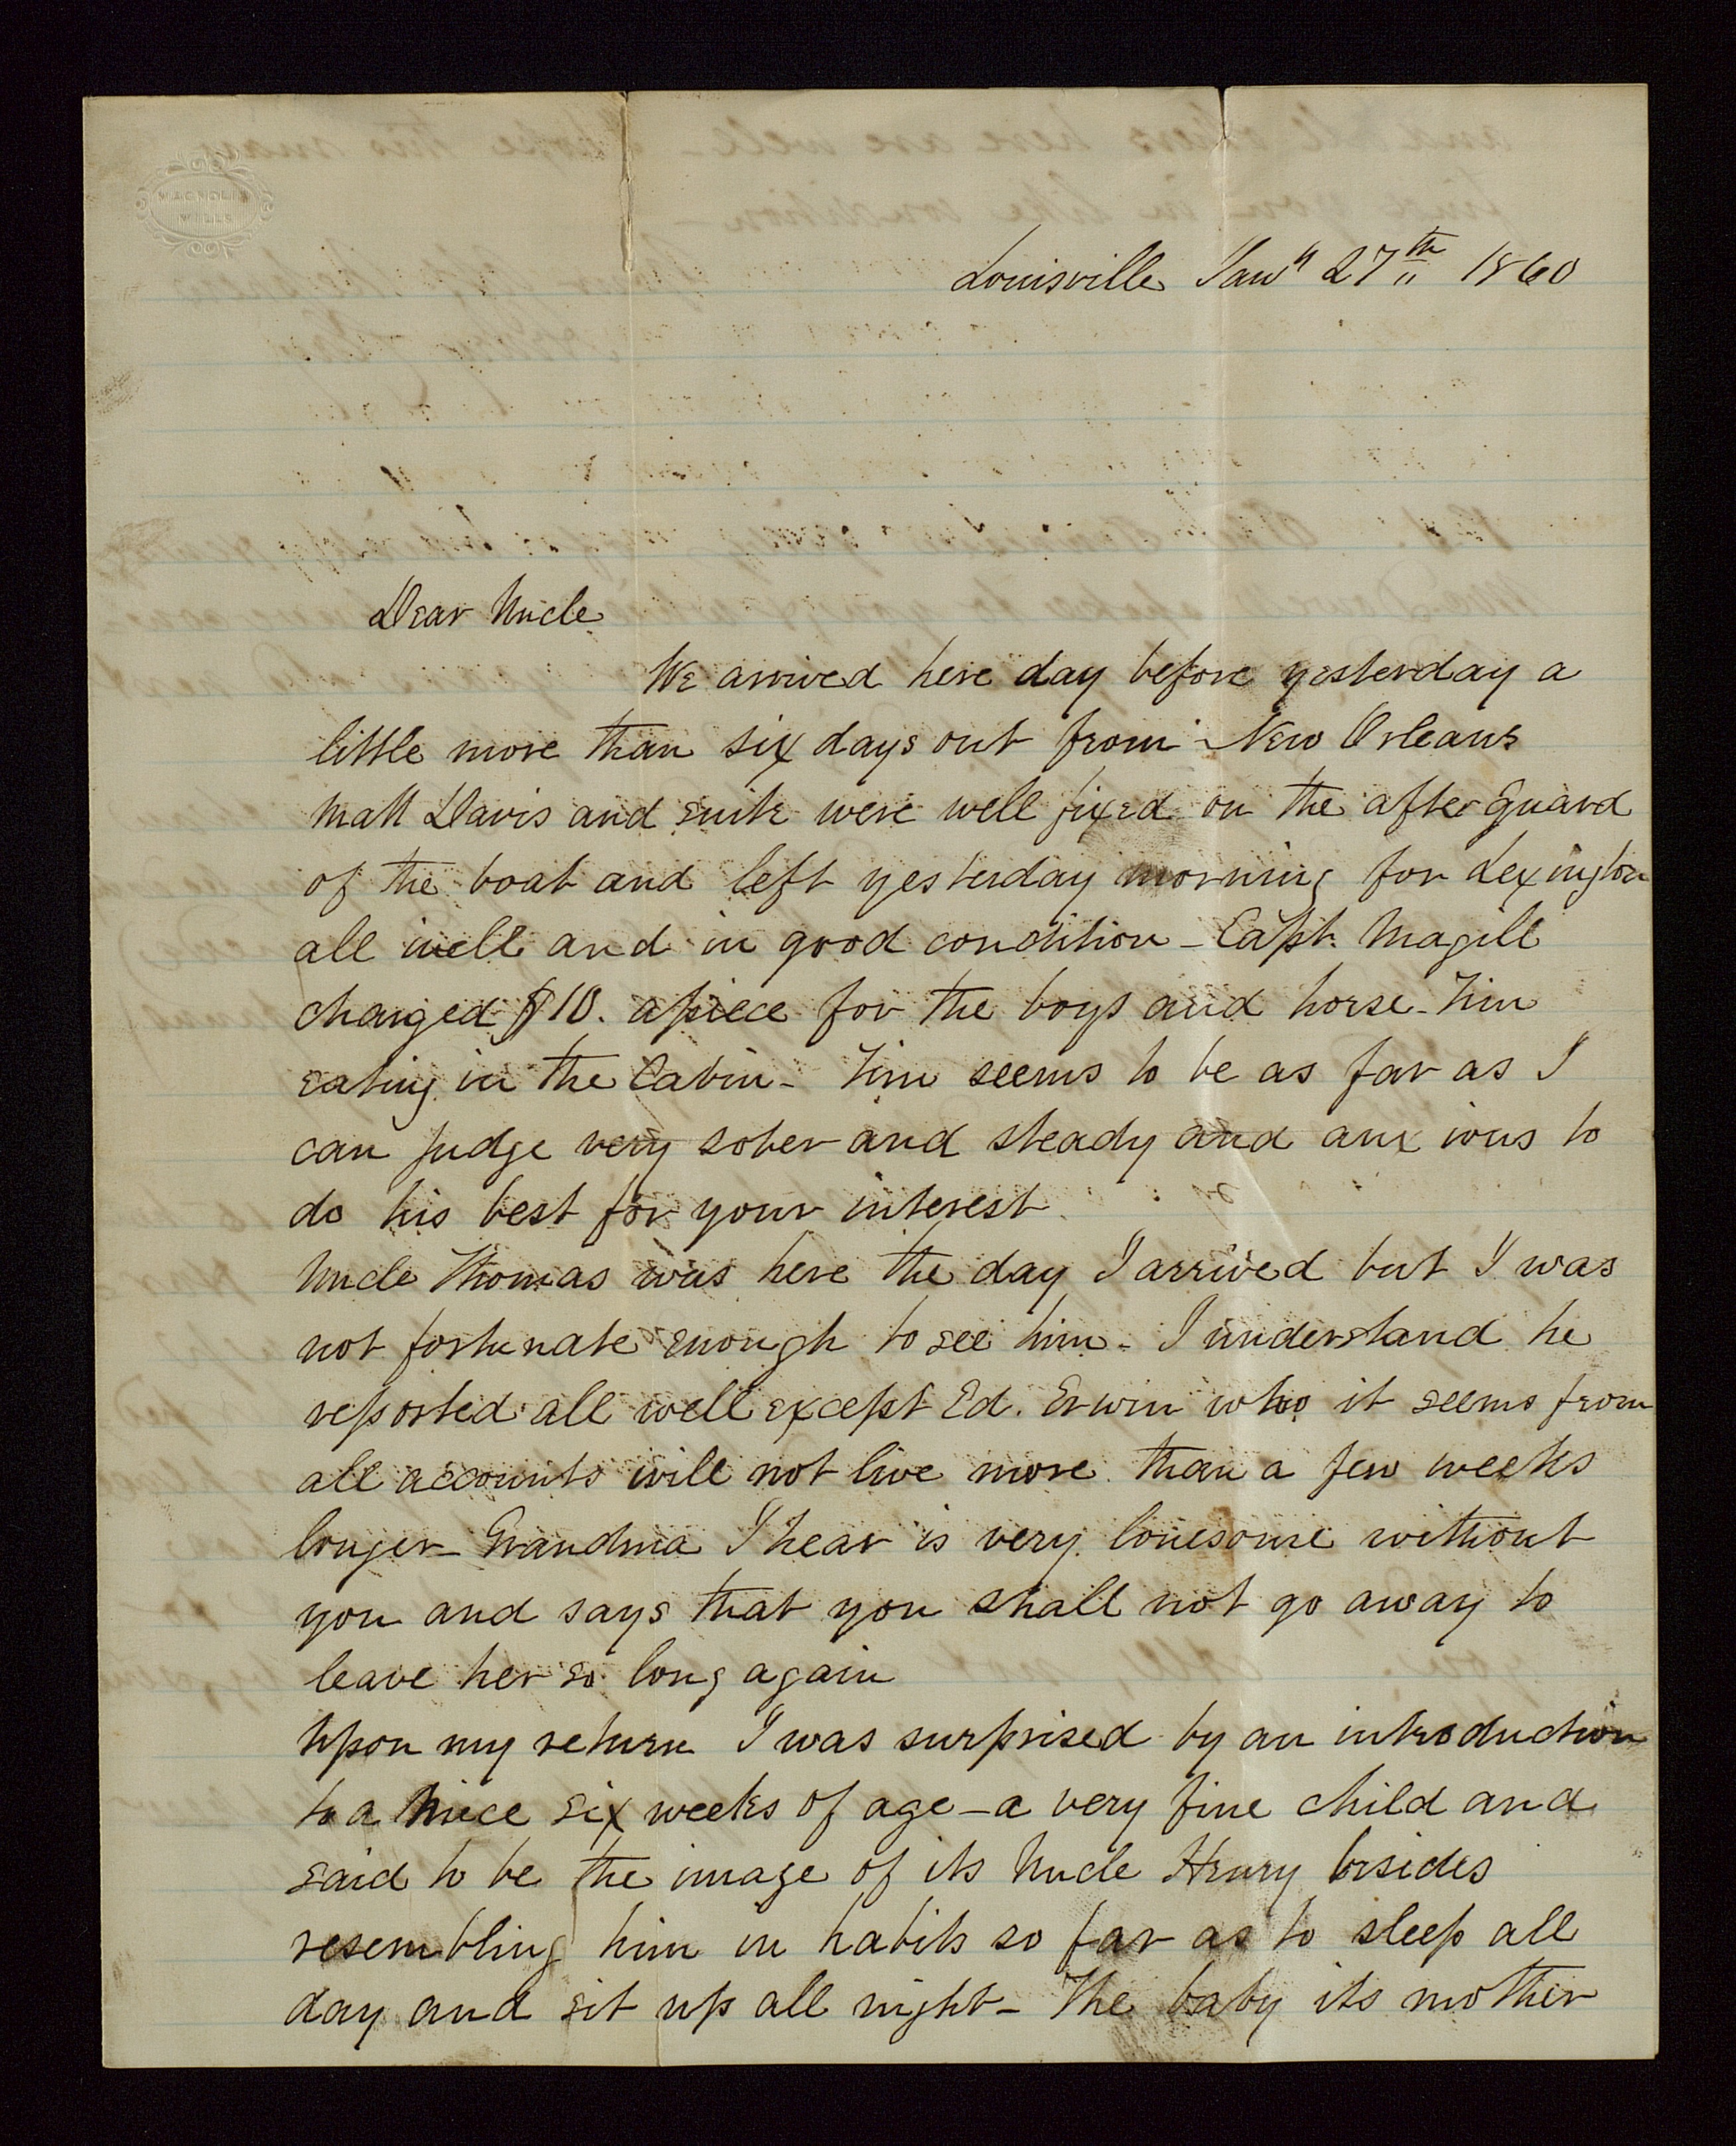 MAGNOLIA
MILLS
Louisville Jany 27th 1860
Dear Uncle
We arrived here day before yesterday a
little more than six days out from New Orleans
Matt Davis and suite were well fixed on the after guard
of the boat and left yesterday morning for Lexington
all well and in good condition - Capt. Magill
charged $10. apiece for the boys and horse - Tim
eating in the Cabin - Tim seems to be as far as I
can judge very sober and steady and anxious to
do his best for your interest.
Uncle Thomas was here the day I arrived but I was
not fortunate enough to see him - I understand he
reported all well except Ed. Erwin who it seems from
all accounts will not live more than a few weeks
longer - Grandma I hear is very lonesome without
you and says that you shall not go away to
leave her so long again
Upon my return I was surprised by an introduction
to a Niece six weeks of age - a very fine child and
said to be the image of its Uncle Henry besides
resembling him in habits so far as to sleep all
day and sit up all night - The baby its mother